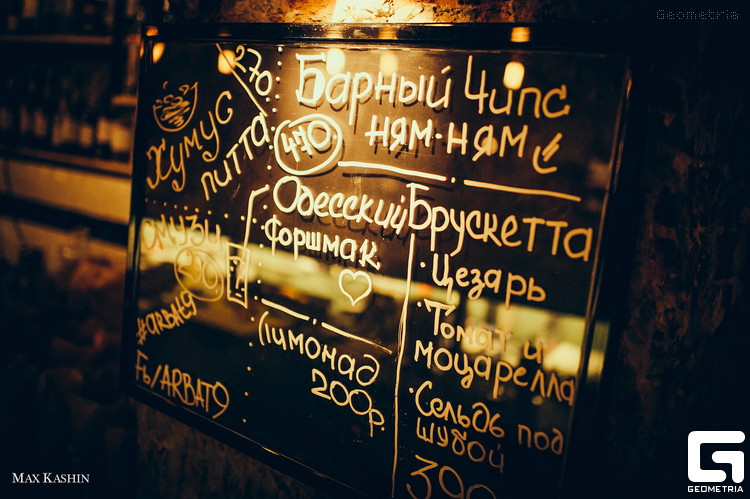 Geometria
270
Хумус
питта
Барный Чипс
470
ням-ням
Одесский
форшмак
Брускетта
· Цезарь
· Томат и
моцарелла
· Сельдь под
шубой
смузи
#arbat9
Fb/ARBAT9
Лимонад
200р.
MAX KASHIN
GEOMETRIA